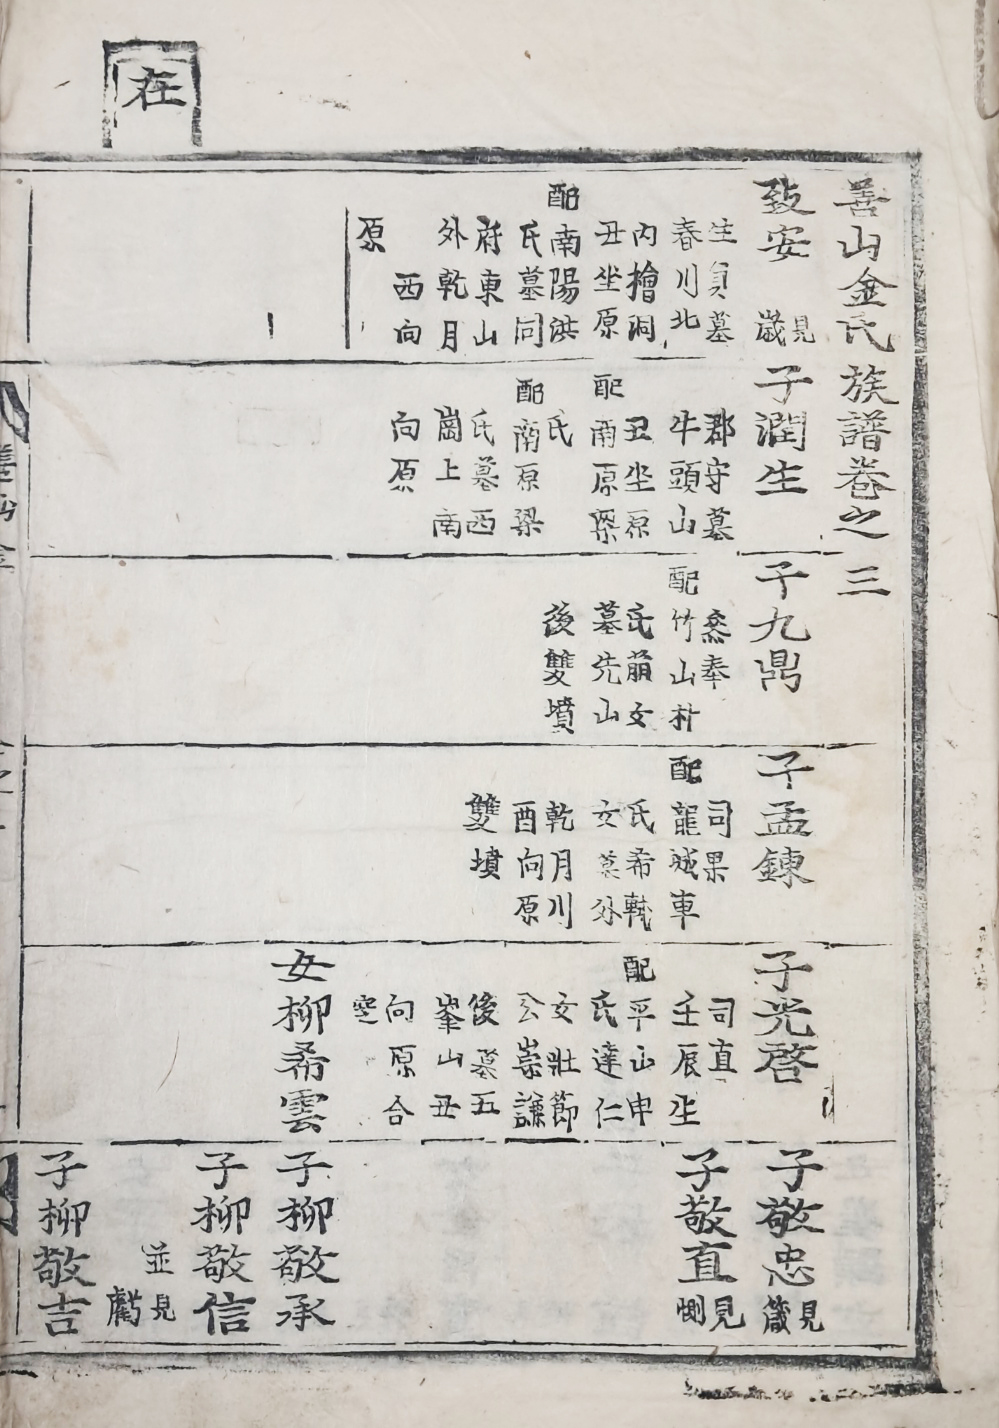 在
善山金氏族譜卷之三
致安
見
歲
生員墓
春川北
內檜洞
丑坐原
配南陽洪
氏墓同
府東山
外乾月
西向
原
子潤生
郡守墓
牛頭山
丑坐原
配南原梁
氏
配南原梁
氏墓西
崗上南
向原
子九鼎
叅奉
配竹山朴
氏萠女
墓先山
後雙墳
子孟鍊
司果
配龍城車
氏希軾
女墓外
乾月川
酉向原
雙墳
子光啓
司直
壬辰生
配平山申
氏達仁
女壯節
公崇謙
後墓五
峯山丑
向原合
窆
女柳希雲
子敬忠
見
箴
子敬直
見
惻
子柳敬承
子柳敬信
並見
虧
子柳敬吉